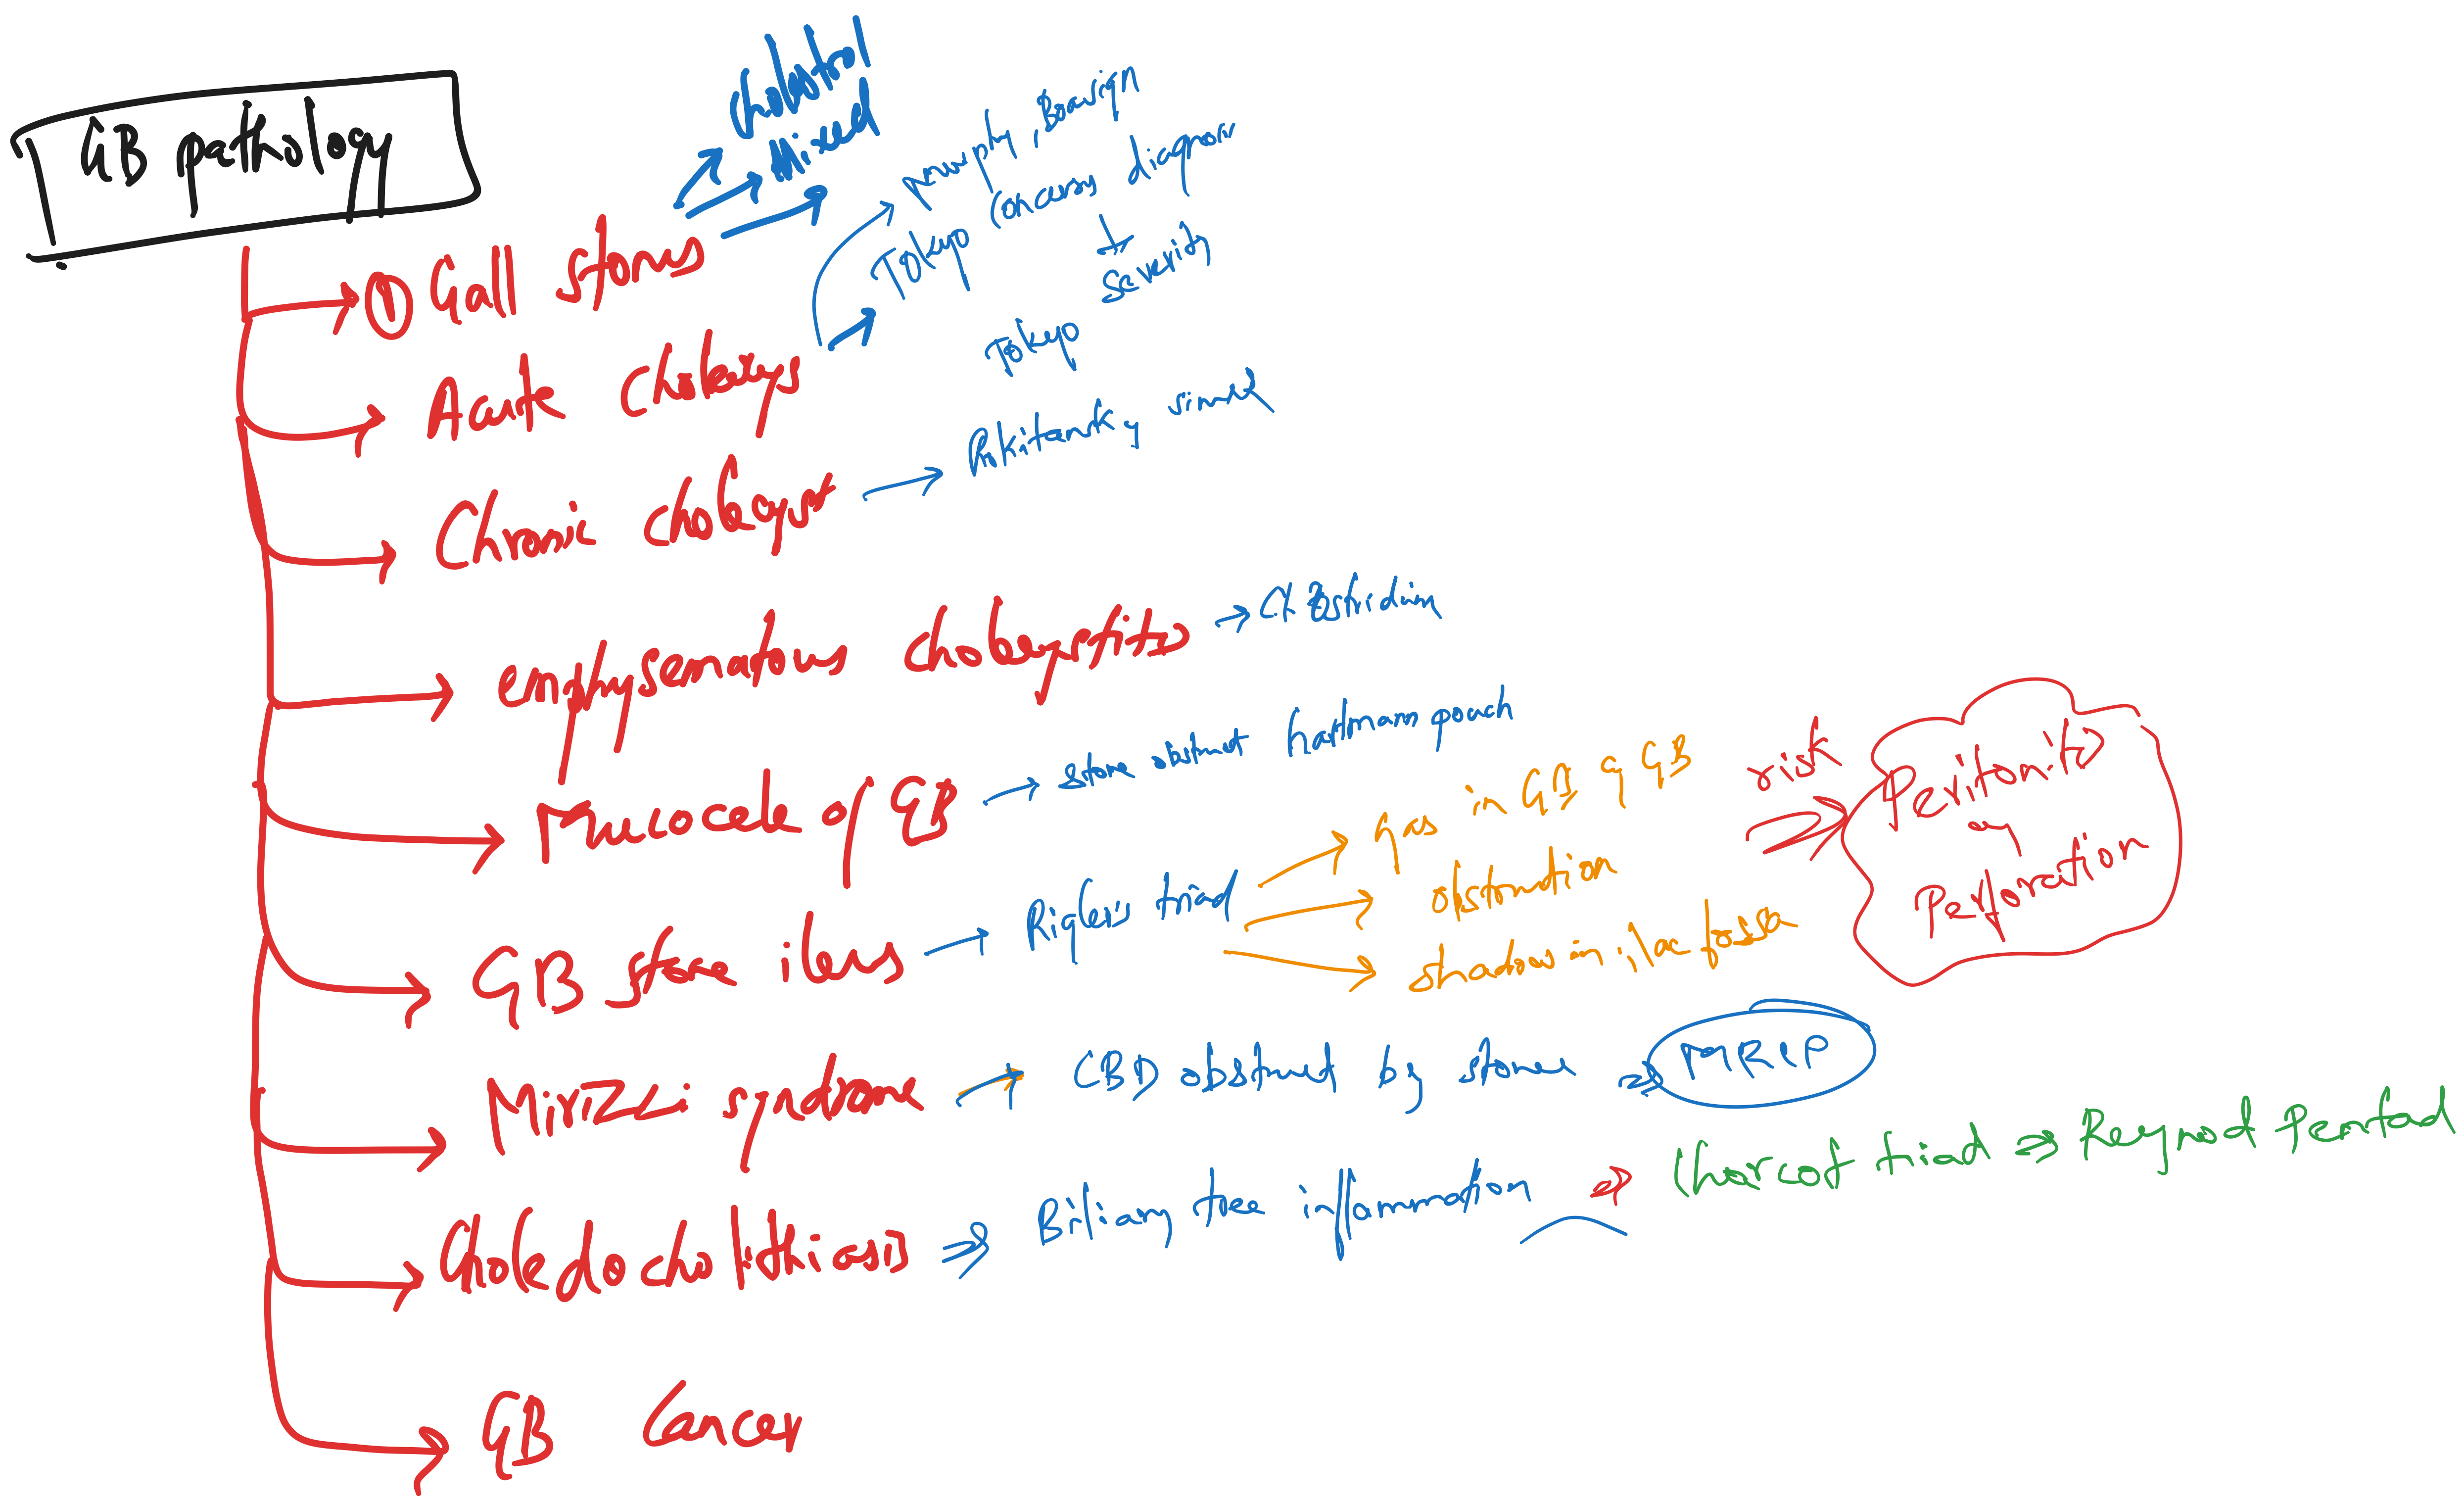 GB pathology
① Gall stones
cholestrol
Mixed
Acute Cholecys
Murphy, Boasign
Tokyo Consens diagnosis
↓
severity
Tokyo
Chronic cholecyst
Rokitansky sinus
emphysematous cholecystitis
Clostridium
Mucocele of GB
stone obstruct hartmann pouch
GB stone ileus
Rigler's triad
obstruction
shadow in iliac fossa
risk
Peritonitis
or
Perforation
Mirizzi syndrome
CBD obstruct by stone
MRCP
Choledocholithiasis
Biliary tree inflammation
Charcot triad ⇒ Reynod Pentad
GB Cancer